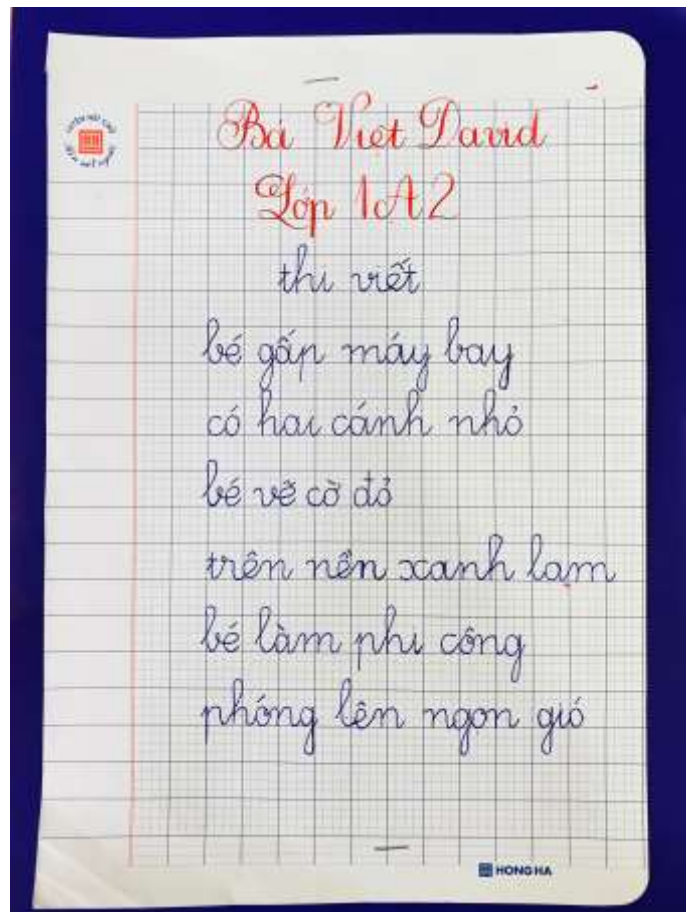 Bá Việt David
Lớp 1A2
thi viết
bé gấp máy bay
có hai cánh nhỏ
bé vẽ cờ đỏ
trên nền xanh lam
bé làm phi công
phóng lên ngọn gió
HONG HA